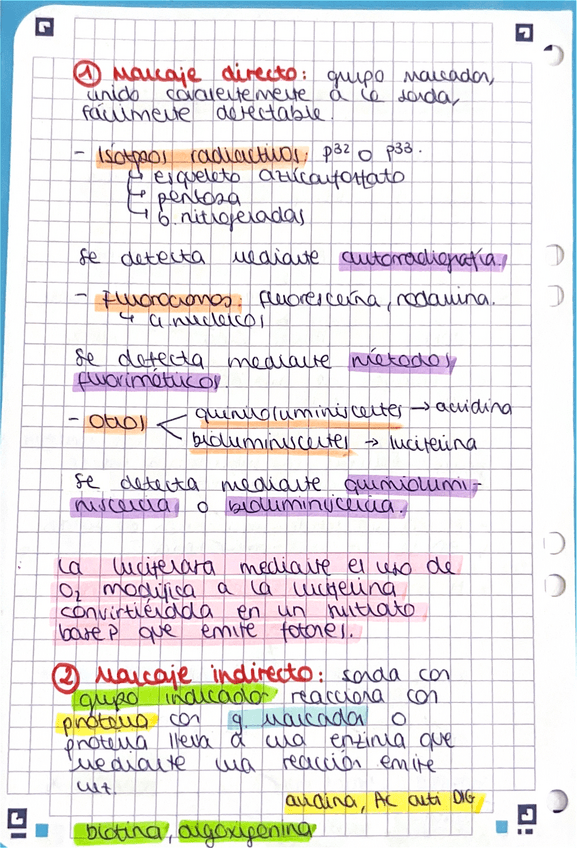 ① Marcaje directo: grupo marcador,
unido covalentemente a la sonda,
fácilmente detectable.
- Isótpos radiactivos: p32 o p33.
↳ esqueleto azúcarfosfato
↳ pentosa
↳ b. nitrogenadas
Se detecta mediante autorradiografía.
- Fluorocromos: fluoresceína, rodamina.
↳ a. nucleicos
Se detecta mediante métodos
fluorimétricos.
- Otros < quimioluminiscentes → acridina
bioluminiscentes → luciferina
Se detecta mediante quimiolumi-
niscencia o bioluminiscencia.
La luciferasa mediante el uso de
O₂ modifica a la luciferina
convirtiéndola en un
base P que emite fotones.
② Marcaje indirecto: sonda con
grupo indicador reacciona con
proteína con g. marcador o
proteína lleva a una enzima que
mediante una reacción emite
luz.
avidina, Ac anti DIG
biotina, digoxigenina